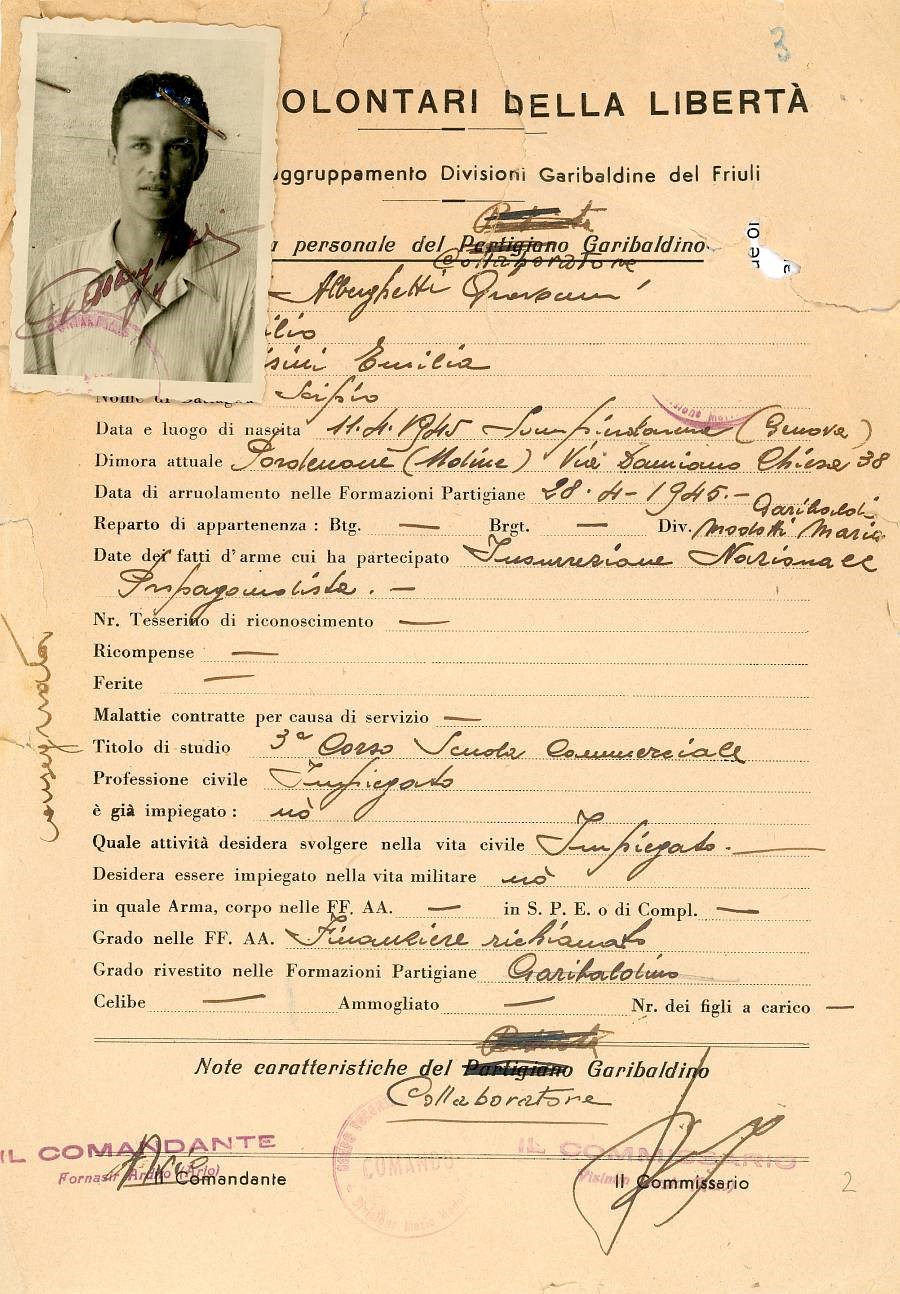 3
OLONTARI DELLA LIBERTÀ
ggruppamento Divisioni Garibaldine del Friuli
a personale del Partigiano Garibaldino
Collaboratore
Alberghetti Giovanni
ilio
sini Emilia
Nome di Battaglia Scipio
Data e luogo di nascita 11.4.1945 (Genova)
Dimora attuale Pordenone (Udine) Via Damiano Chiesa 38
Data di arruolamento nelle Formazioni Partigiane 28.4-1945.-
Garibaldi
Reparto di appartenenza : Btg. — Brgt. — Div. Modotti Mario
Date dei fatti d'arme cui ha partecipato Insurrezione Nazionale
Propagandista. -
Nr. Tesserino di riconoscimento —
Ricompense —
Ferite —
Malattie contratte per causa di servizio —
Titolo di studio 3ª Corso Scuola Commerciale
Professione civile Impiegato
è già impiegato : nò
Quale attività desidera svolgere nella vita civile Impiegato.-
Desidera essere impiegato nella vita militare nò
in quale Arma, corpo nelle FF. AA. — in S. P. E. o di Compl. —
Grado nelle FF. AA. Finanziere richiamato
Grado rivestito nelle Formazioni Partigiane Garibaldino
Celibe — Ammogliato — Nr. dei figli a carico —
Note caratteristiche del Partigiano Garibaldino
Collaboratore
IL COMANDANTE
IL COMMISSARIO
COMANDO
Il Comandante
Il Commissario
2